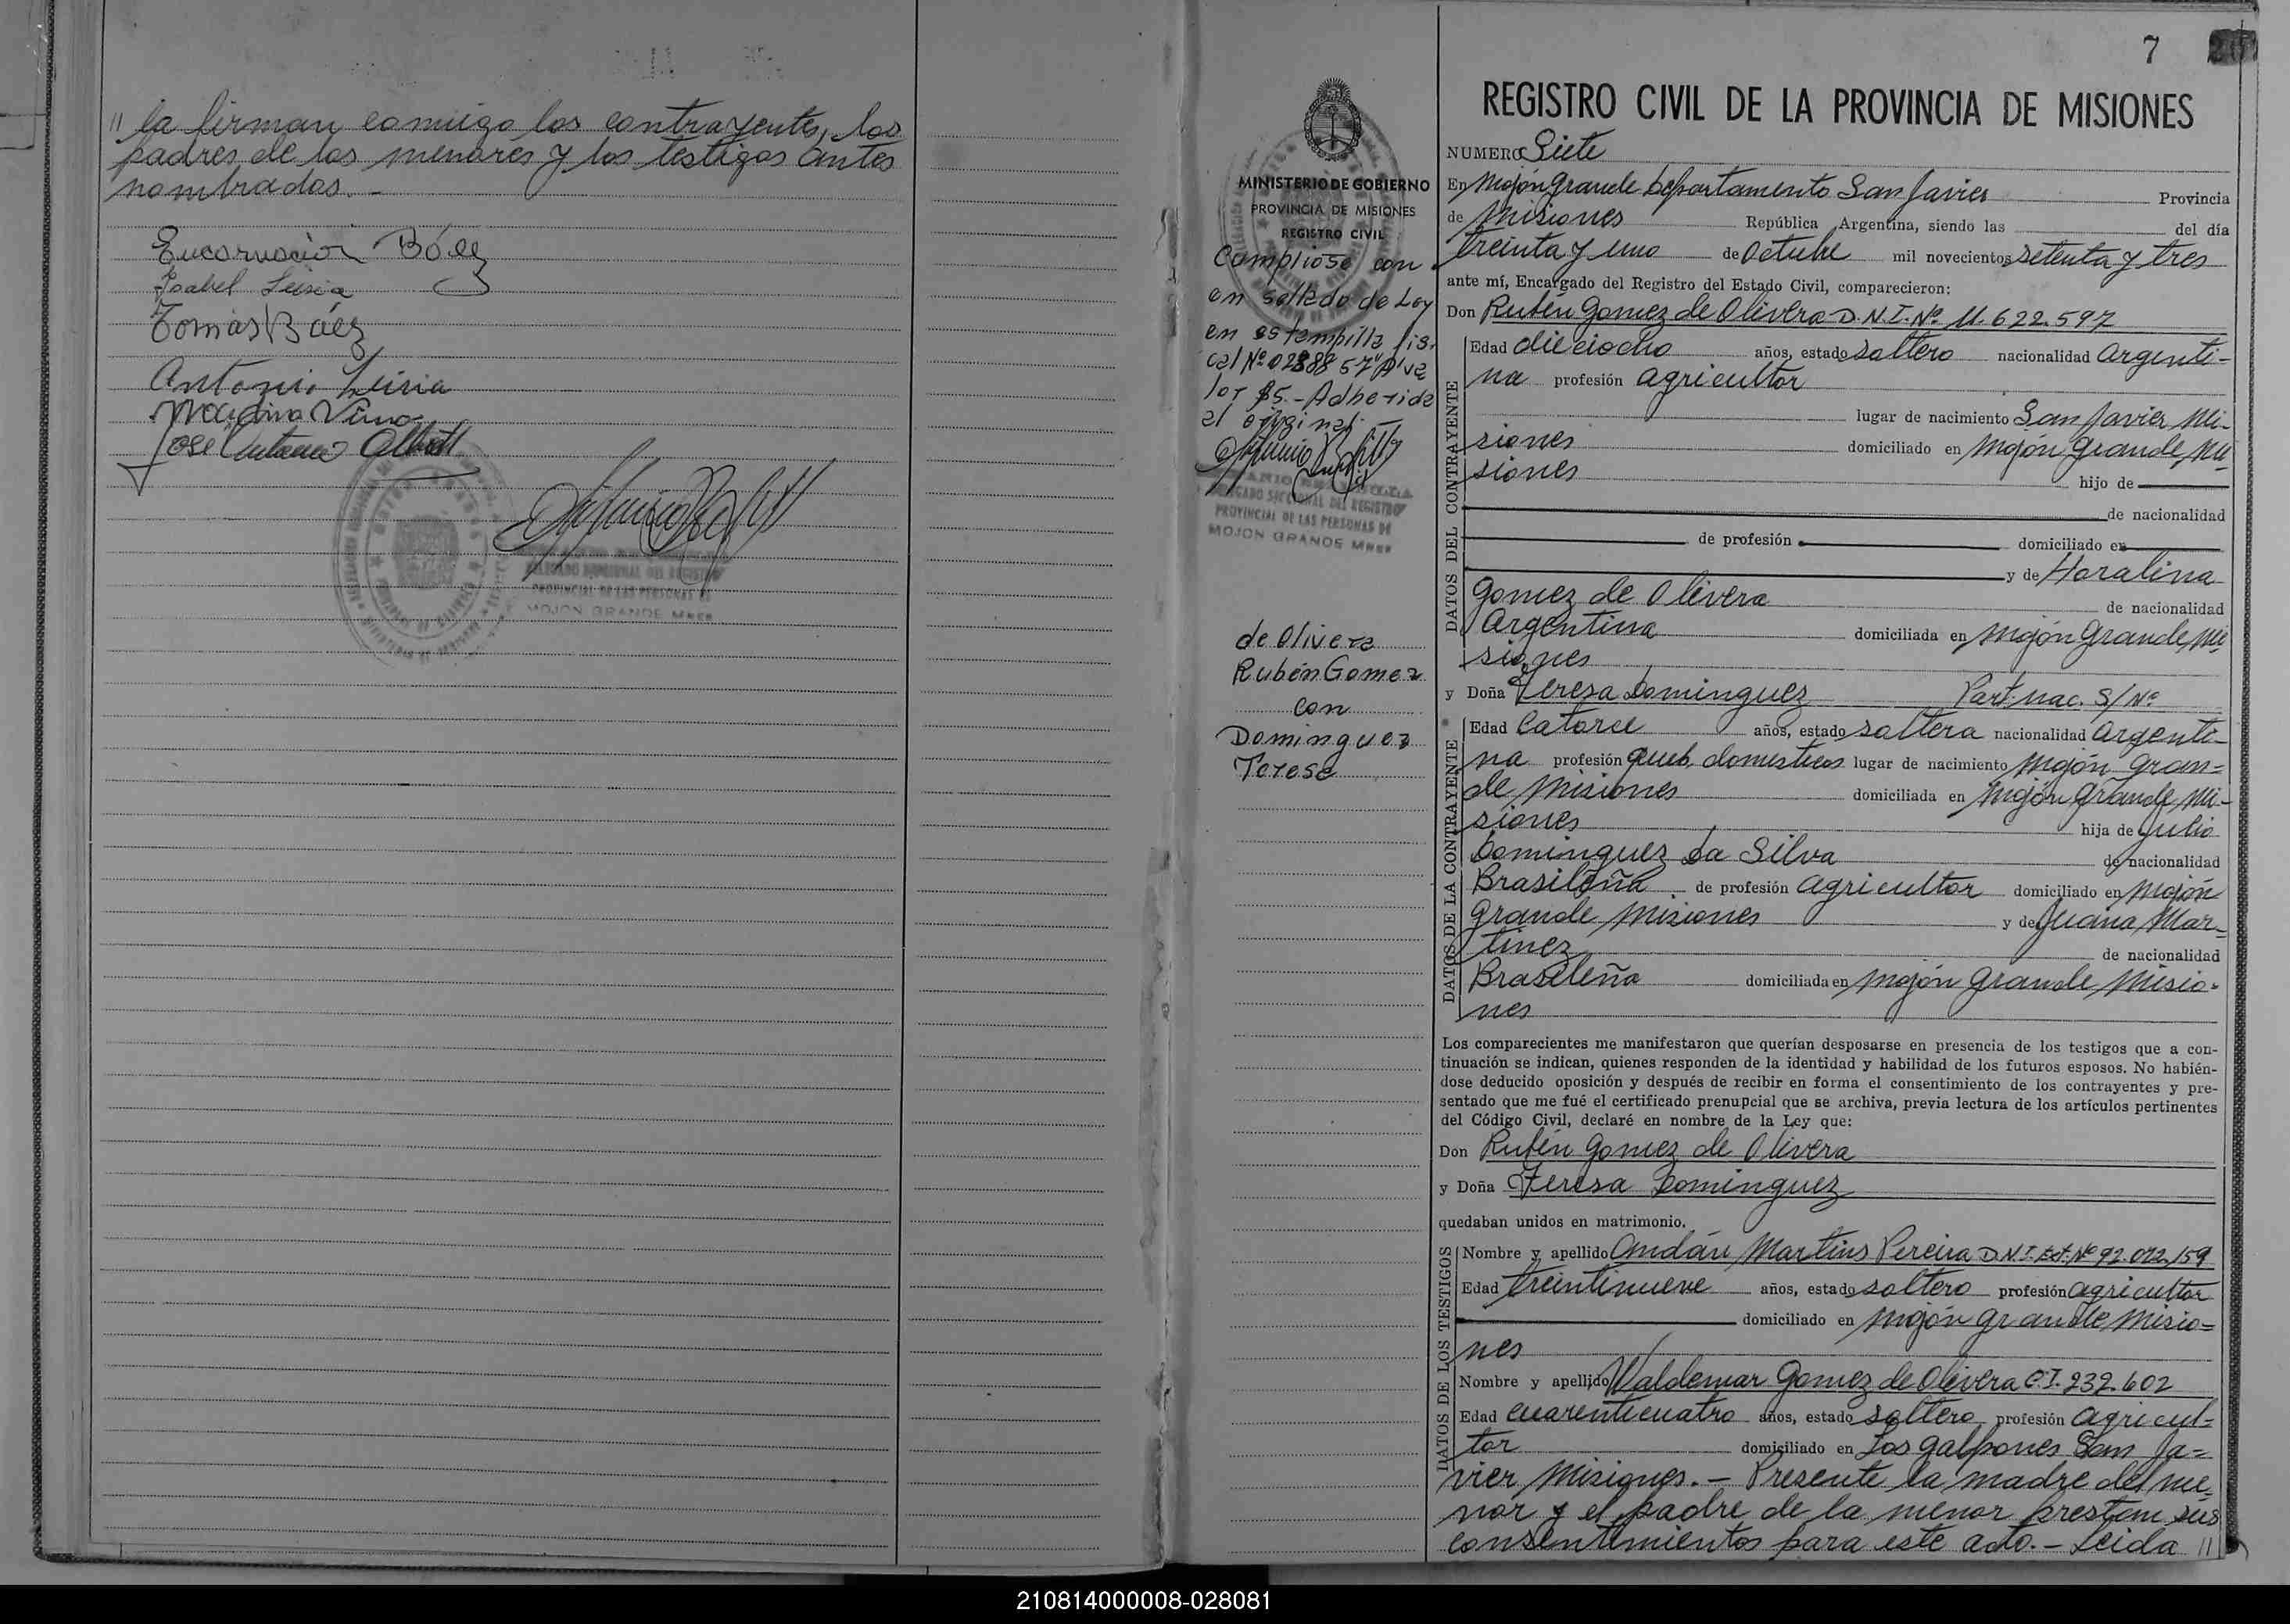 " la firman conmigo los contrayentes, los
padres de los menores y los testigos antes
nombrados. -
Encarnación Báez
Isabel Leiria
Tomás Báez
Antonio Leiria
Marcina Vino
José Antonio
PROVINCIAL DE LAS PERSONAS DE
MOJON GRANDE Mnes
MINISTERIO DE GOBIERNO
PROVINCIA DE MISIONES
REGISTRO CIVIL
Cumpliose con
en sellado de Ley
en estampilla fis.
cal Nº 0288857"A" va
lor $5.- Adherida
al original.
DELEGADO SECCIONAL DEL REGISTRO
PROVINCIAL DE LAS PERSONAS DE
MOJON GRANDE Mnes
de Olivera
Rubén Gomez
con
Dominguez
Teresa
7
REGISTRO CIVIL DE LA PROVINCIA DE MISIONES
NUMERO Siete
En Mojón Grande Departamento San Javier Provincia
de Misiones República Argentina, siendo las del día
treinta y uno de Octubre mil novecientos setenta y tres
ante mí, Encargado del Registro del Estado Civil, comparecieron:
Don Rubén Gomez de Olivera D.N.I. Nº 11.622.597
DATOS DEL CONTRAYENTE
Edad dieciocho años, estado soltero nacionalidad Argenti-
na profesión agricultor
lugar de nacimiento San Javier Mi-
siones domiciliado en Mojón Grande, Mi-
siones hijo de
de nacionalidad
de profesión domiciliado en
y de Horalina
Gomez de Olivera de nacionalidad
Argentina domiciliada en Mojón Grande, Mi-
siones
y Doña Teresa Dominguez Part. nac. S/Nº
DATOS DE LA CONTRAYENTE
Edad Catorce años, estado soltera nacionalidad Argenti-
na profesión queh. domesticos lugar de nacimiento Mojón Gran=
de Misiones domiciliada en Mojón Grande, Mi-
siones hija de Julio
Dominguez Da Silva de nacionalidad
Brasileña de profesión agricultor domiciliado en Mojón
Grande Misiones y de Juana Mar-
tinez de nacionalidad
Brasileña domiciliada en Mojón Grande Misio-
nes
Los comparecientes me manifestaron que querían desposarse en presencia de los testigos que a con-
tinuación se indican, quienes responden de la identidad y habilidad de los futuros esposos. No habién-
dose deducido oposición y después de recibir en forma el consentimiento de los contrayentes y pre-
sentado que me fué el certificado prenupcial que se archiva, previa lectura de los artículos pertinentes
del Código Civil, declaré en nombre de la Ley que:
Don Rubén Gomez de Olivera
y Doña Teresa Dominguez
quedaban unidos en matrimonio.
DATOS DE LOS TESTIGOS
Nombre y apellido Andán Martins Pereira D.N.I. Ext. Nº 92.072.159
Edad treintinueve años, estado soltero profesión agricultor
domiciliado en Mojón Grande Misio=
nes
Nombre y apellido Waldemar Gomez de Olivera C.I. 232.602
Edad cuarenticuatro años, estado soltero profesión agricul=
tor domiciliado en Los Galpones San Ja=
vier Misiones. - Presente la madre del me-
nor y el padre de la menor prestan sus
consentimientos para este acto. - Leida "
210814000008-028081